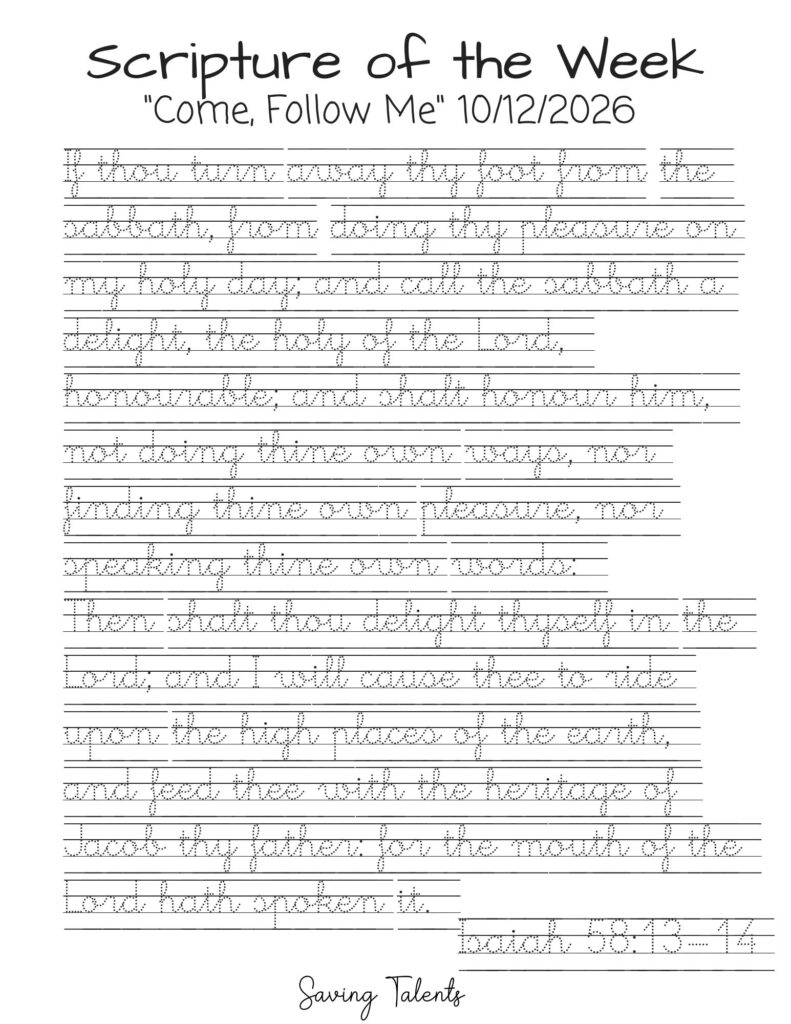 Scripture of the Week
"Come, Follow Me" 10/12/2026
If thou turn away thy foot from the
sabbath, from doing thy pleasure on
my holy day; and call the sabbath a
delight, the holy of the Lord,
honourable; and shalt honour him,
not doing thine own ways, nor
finding thine own pleasure, nor
speaking thine own words:
Then shalt thou delight thyself in the
Lord; and I will cause thee to ride
upon the high places of the earth,
and feed thee with the heritage of
Jacob thy father: for the mouth of the
Lord hath spoken it.
Isaiah 58:13–14
Saving Talents